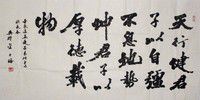 天行健君
子以自強
不息地勢
坤君子以
厚德載
物